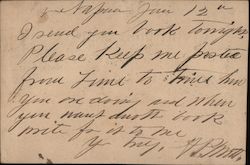 Napan Jan 12th
I send you book tonight
Please Keep me posted
from time to time how
you are doing and when
you want another book
write for it to me